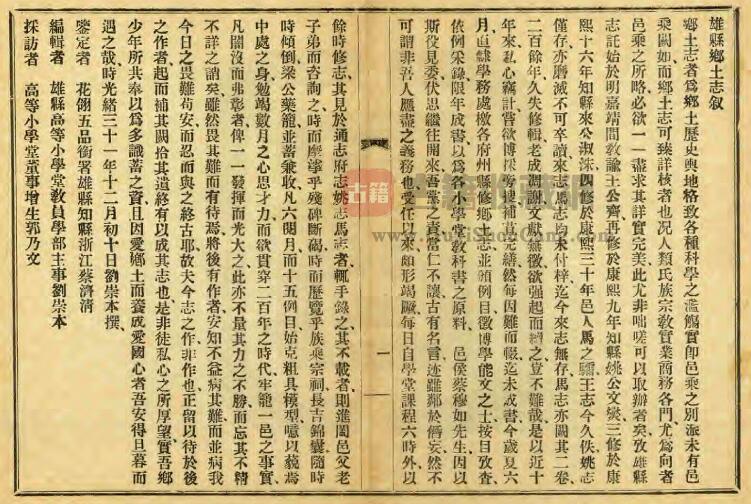 雄縣鄉土志叙
鄉土志者為鄉土歷史輿地格致各種科學之濫觴實卽邑乘之別派未有邑
乘闕如而鄉土志可臻詳核者也况人類氏族宗教實業商務各門尤為向者
邑乘之所略必欲一一盡求其詳實完美此尤非咄嗟可以取辦者矣攷雄縣
志託始於明嘉靖間教諭王公齊再修於康熙九年知縣姚公文燮三修於康
熙十六年知縣來公淑洙四修於康熙三十年邑人馬之驌王志今久佚姚志
僅存亦磨滅不可卒讀來志馬志均未付梓迄今來志無存馬志亦闕其二卷
二百餘年久失修輯老成凋謝文獻無徵欲強起而續之豈不難哉是以近十
年來私心竊計嘗欲博採旁搜補直志繕然每因難而輟迄未成書今歲六
月直隸學務處檄各府州縣修鄉土志並頒例目徵博學能文之士按目攷查
依例采錄限年成書以為各小學堂教科書之原料　邑侯蔡穆如先生因以
斯役見委伏思繼往開來吾黨之責當仁不讓古有名言迹雖鄰於僭妄然不
可謂非吾人應盡之義務也受任以來頗形竭蹶每日自學堂課程六時外以
一
餘時修志其見於通志府志姚志馬志者輒手錄之其不載者則進閭邑父老
子弟而咨詢之時而摩挲乎殘碑斷碣時而歷覽乎族乘宗祠長吉錦囊隨時
時傾倒梁公藥籠並蓄兼收凡六閱月而十五例目始克粗具模型噫以藐焉
中處之身勉竭數月之心思才力而欲貫穿二百年之時代牢籠一邑之事實
凡闇沒而弗彰者俾一一發揮而光大之此亦不量其力之不勝而忘其不精
不詳之謂矣雖然畏其難而有待焉將後有作者安知不益病其難而並病我
今日之畏難苟安而忍而與之終古耶故夫今志之作非作也正留以待於後
之作者起而補其闕拾其遺終有以成其志也是非徒私心之所厚望實吾鄉
少年所共奉以為多識蓄之資且因愛鄉土而養成愛國心者吾安得旦暮而
遇之哉時光緒三十一年十二月初十日劉崇本撰
鑒定者　花翎五品銜署雄縣知縣浙江蔡濟清
編輯者　雄縣高等小學堂教員學部主事劉崇本
採訪者　高等小學堂董事增生郭乃文
古籍
www.GujiShuCang.com